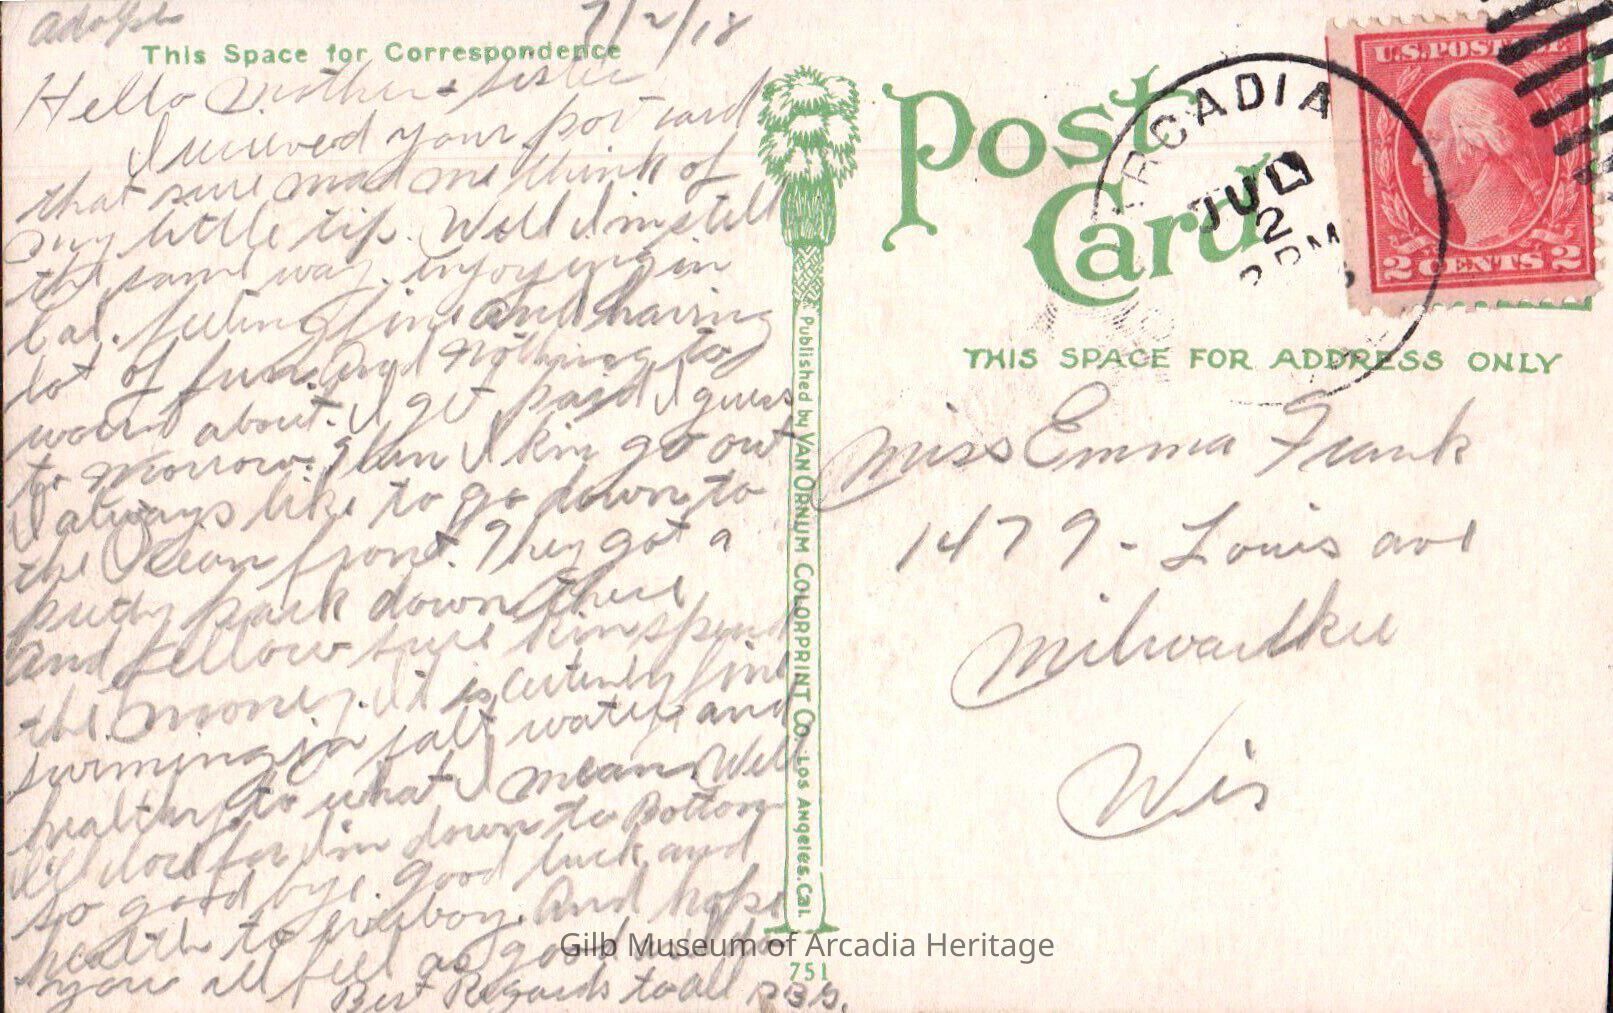 Adolph 7/2/18
This Space for Correspondence
Hello Mother & sister
I received your post card
that sure mad me think of
my little tip. Well I'm still
the same way. injoying in
Cal. feeling fine and having
lot of fun. And nothing to
worrit about. I get paid I guess
to morrow. Then I kin go out
I always like to go down to
the Ocean front. They got a
putty park down there
And fellow sure kin spend
the money. It is certenly fine
swiming in salt water and
healthy to what I mean. Well
I'll close for I'm down to Bottom
so good bye. good luck and
health to evrieboy. And hope
you all feel as good as I do
Best Regards to all
Post
Card
ARCADIA
JUL
2
PM
U.S. POSTAGE
2 CENTS 2
THIS SPACE FOR ADDRESS ONLY
Miss Emma Frank
1479 - Louis ave
Milwaulkee
Wis
Published by VAN ORNUM COLORPRINT CO. LOS ANGELES, CAL.
751
Gilb Museum of Arcadia Heritage